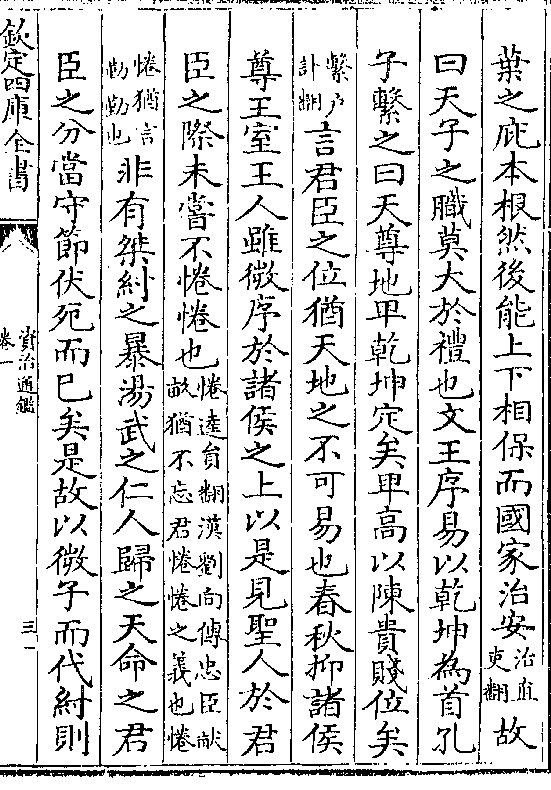 葉之庇本根然後能上下相保而國家治安治直吏翻故
曰天子之職莫大於禮也文王序易以乾坤為首孔
子繫之曰天尊地卑乾坤定矣卑高以陳貴賤位矣
繫户計翻言君臣之位猶天地之不可易也春秋抑諸侯
尊王室王人雖微序於諸侯之上以是見聖人於君
臣之際未嘗不惓惓也惓逵員翻漢劉向傳忠臣畎畝猶不忘君惓惓之義也惓
惓猶言勤勤也非有桀紂之暴湯武之仁人歸之天命之君
臣之分當守節伏死而已矣是故以微子而代紂則
欽定四庫全書
資治通鑑
卷一
三